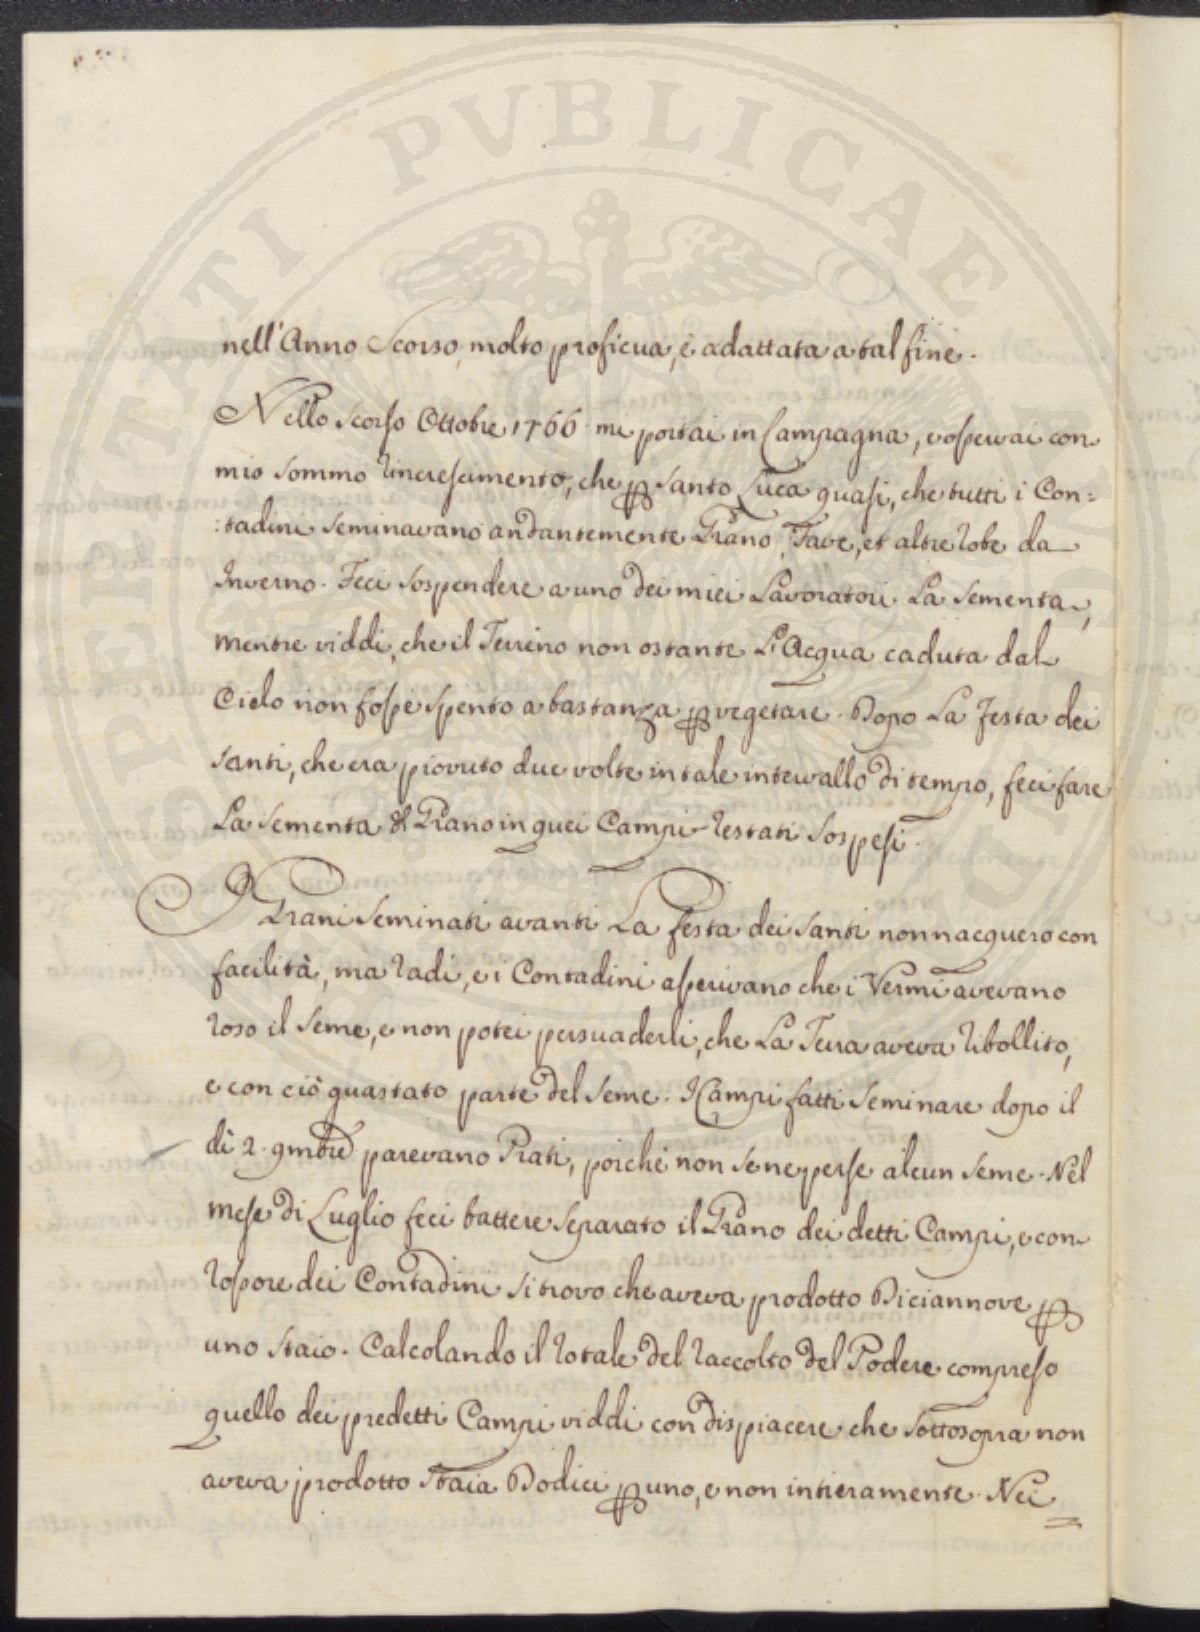 PROSPERITATI PVBLICAE
nell'Anno Scorso, molto proficua, è adattata a tal fine.
Nello scorso Ottobre 1766 mi portai in Campagna, e osservai con
mio sommo rincrescimento, che p santo Luca quasi, che tutti i Con=
:tadini seminavano andantemente Grano, Fave, et altre robe da
Inverno. Feci sospendere a uno dei miei Lavoratori La sementa,
mentre viddi, che il Terreno non ostante L'Acqua caduta dal
Cielo non fosse spento a bastanza p vegetare. Dopo La Festa dei
santi, che era piovuto due volte in tale intervallo di tempo, feci fare
La sementa di Grano in quei Campi restati sospesi.
I Grani seminati avanti La festa dei santi non nacquero con
facilità, ma radi, e i Contadini asserivano che i Vermi avevano
roso il seme, e non potei persuaderli, che La Terra aveva ribollito,
e con ciò guastato parte del seme. I Campi fatti seminare dopo il
dì 2. 9mbre parevano Prati, poiché non se ne perse alcun seme. Nel
mese di Luglio feci battere separato il Grano dei detti Campi, e con
rossore dei Contadini si trovo che aveva prodotto Diciannove p
uno staio. Calcolando il totale del raccolto del Podere compreso
quello dei predetti Campi viddi con dispiacere che sottosopra non
aveva prodotto staia Dodici p uno, e non intieramente. Nei